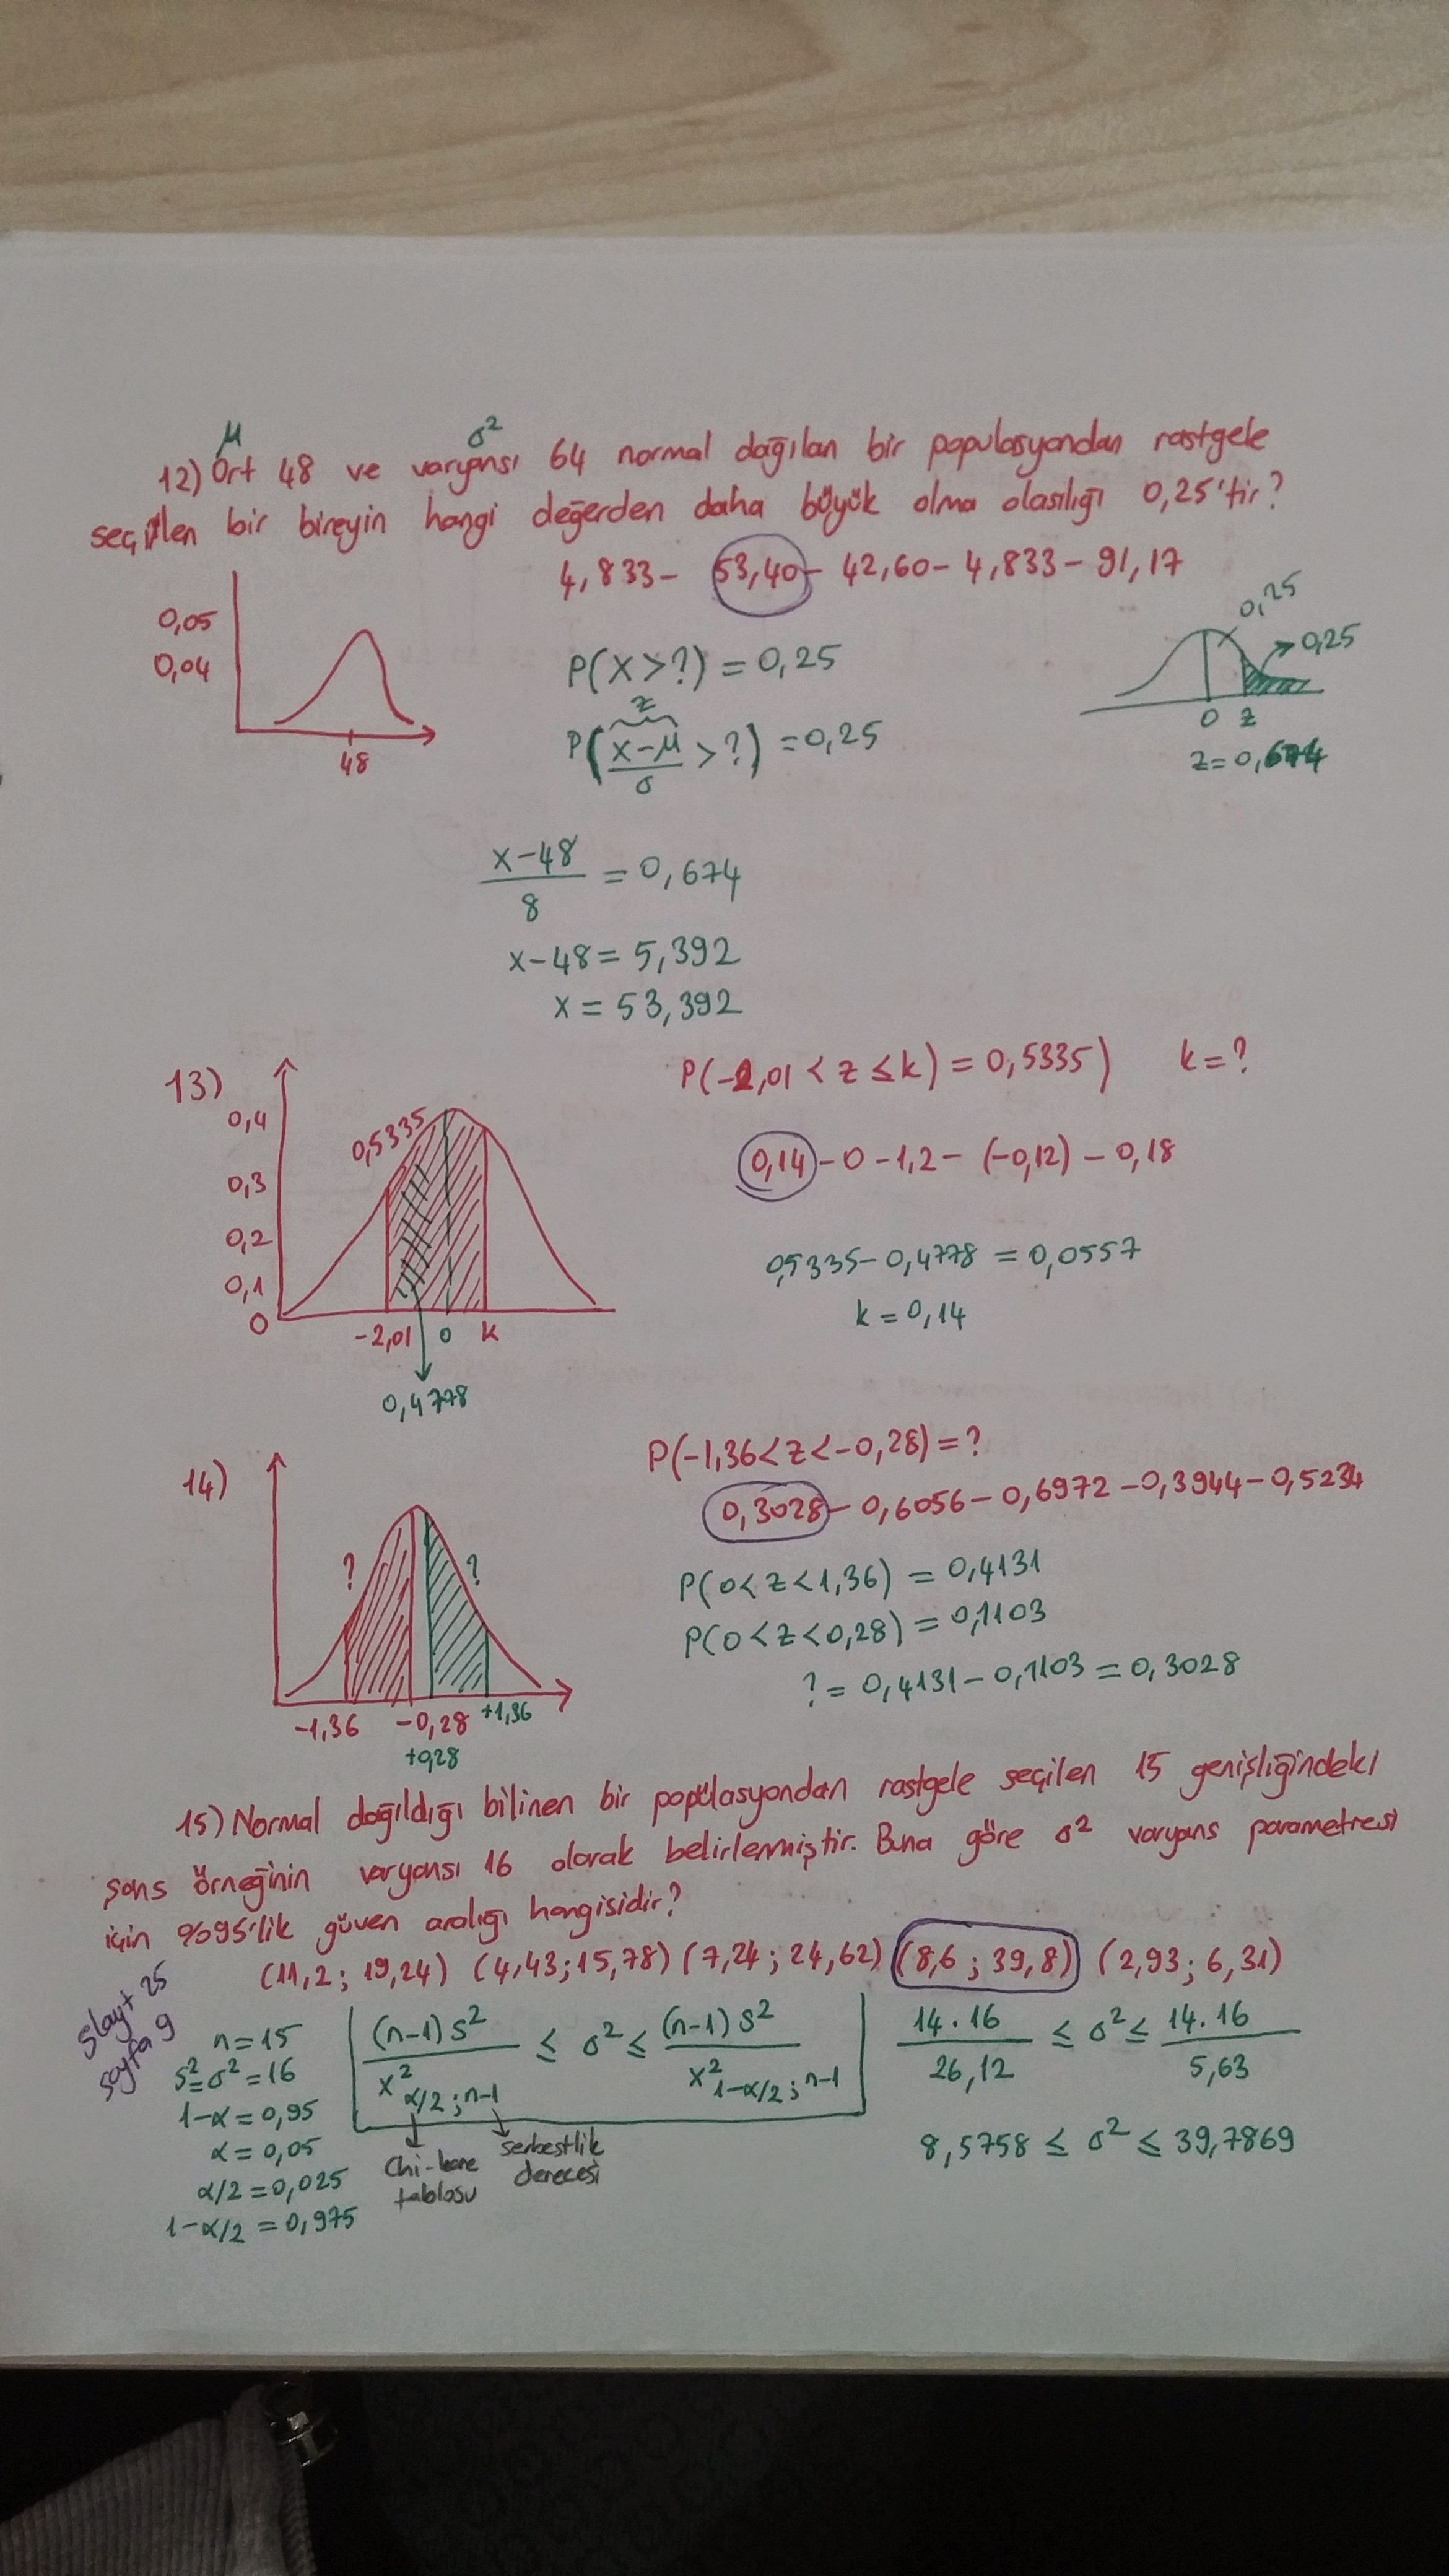 μ σ²
12) Ort 48 ve varyansı 64 normal dağılan bir populasyondan rastgele
seçilen bir bireyin hangi değerden daha büyük olma olasılığı 0,25'tir?
4,833 - 53,40 - 42,60 - 4,833 - 91,17
0,05
0,04
48
P(X>?) = 0,25
z
P(x-μ/σ > ?) = 0,25
0,25
0,25
0 z
z=0,674
x-48/8 = 0,674
x-48 = 5,392
x = 53,392
13)
P(-2,01 < z ≤ k) = 0,5335) k=?
0,14 - 0 - 1,2 - (-0,12) - 0,18
0,5335
0,4
0,3
0,2
0,1
0
-2,01 0 k
0,4778
0,5335-0,4778 = 0,0557
k = 0,14
14)
P(-1,36<z<-0,28)=?
0,3028 - 0,6056 - 0,6972 - 0,3944 - 0,5234
? ?
-1,36 -0,28 +1,36
+0,28
P(0<z<1,36) = 0,4131
P(0<z<0,28) = 0,1103
? = 0,4131-0,1103 = 0,3028
15) Normal dağıldığı bilinen bir popülasyondan rastgele seçilen 15 genişliğindeki
şans örneğinin varyansı 16 olarak belirlenmiştir. Buna göre σ² varyans parametresi
için %95'lik güven aralığı hangisidir?
(11,2; 19,24) (4,43;15,78) (7,24; 24,62) (8,6 ; 39,8) (2,93; 6,31)
Slayt 25
sayfa 9
n=15
s²=σ²=16
1-α=0,95
α=0,05
α/2=0,025
1-α/2=0,975
(n-1)s²/x²α/2;n-1 ≤ σ² ≤ (n-1)s²/x²1-α/2;n-1
Chi-kare
tablosu
serbestlik
derecesi
14.16/26,12 ≤ σ² ≤ 14.16/5,63
8,5758 ≤ σ² ≤ 39,7869